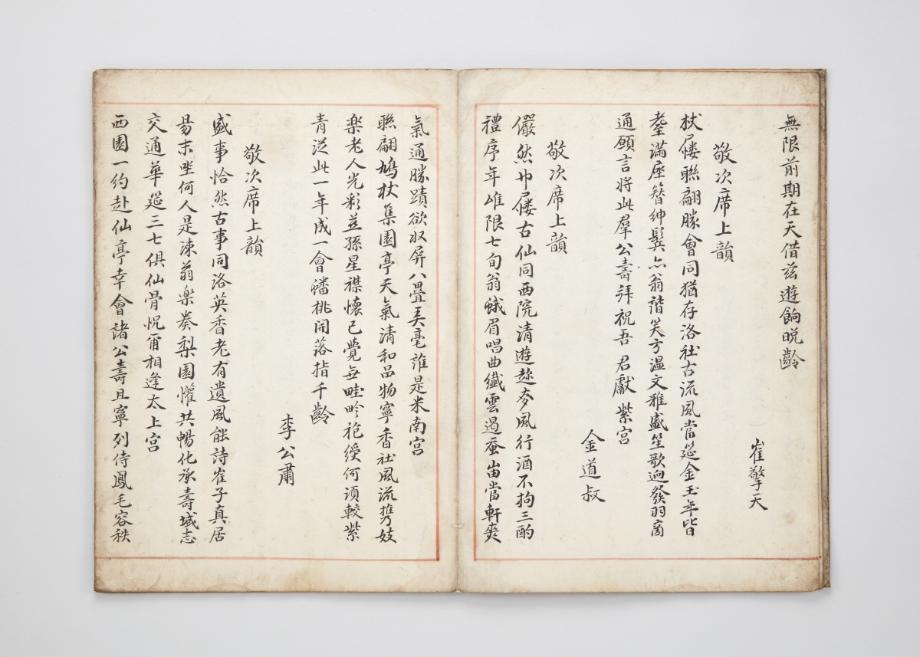 無限前期在天借茲遊餉晩齡
崔擎天
敬次席上韻
杖屨聯翩勝會同猶存洛社古流風當筵金玉年皆
耋滿座簪紳鬂亦翁諧笑方溫文雅盛笙歌迎發羽商
通願言將此羣公壽拜祝吾君獻紫宮
金道叔
敬次席上韻
儼然巾屨古仙同西院清遊趂麥風行酒不拘三酌
禮序年雄限七旬翁蛾眉唱曲纖雲過蚕當軒爽
氣通勝蹟欲收屛八疊美毫誰是米南宮
聯翩鳩杖集園亭天氣清和品物寧香社風流携妓
樂老人光彩並孫星襟懷已覺無畦畛袍綬何須較紫
青從此一年成一會蟠桃開落指千齡
李公肅
敬次席上韻
盛事恰然古事同洛英香老有遺風能詩崔子真居
昜末坐何人是涑翁樂奏梨園懽共暢化承壽域志
交通華筵三七俱仙骨怳甭相逢太上宮
西園一約赴仙亭幸會諸公壽且寧列侍鳳毛容秩